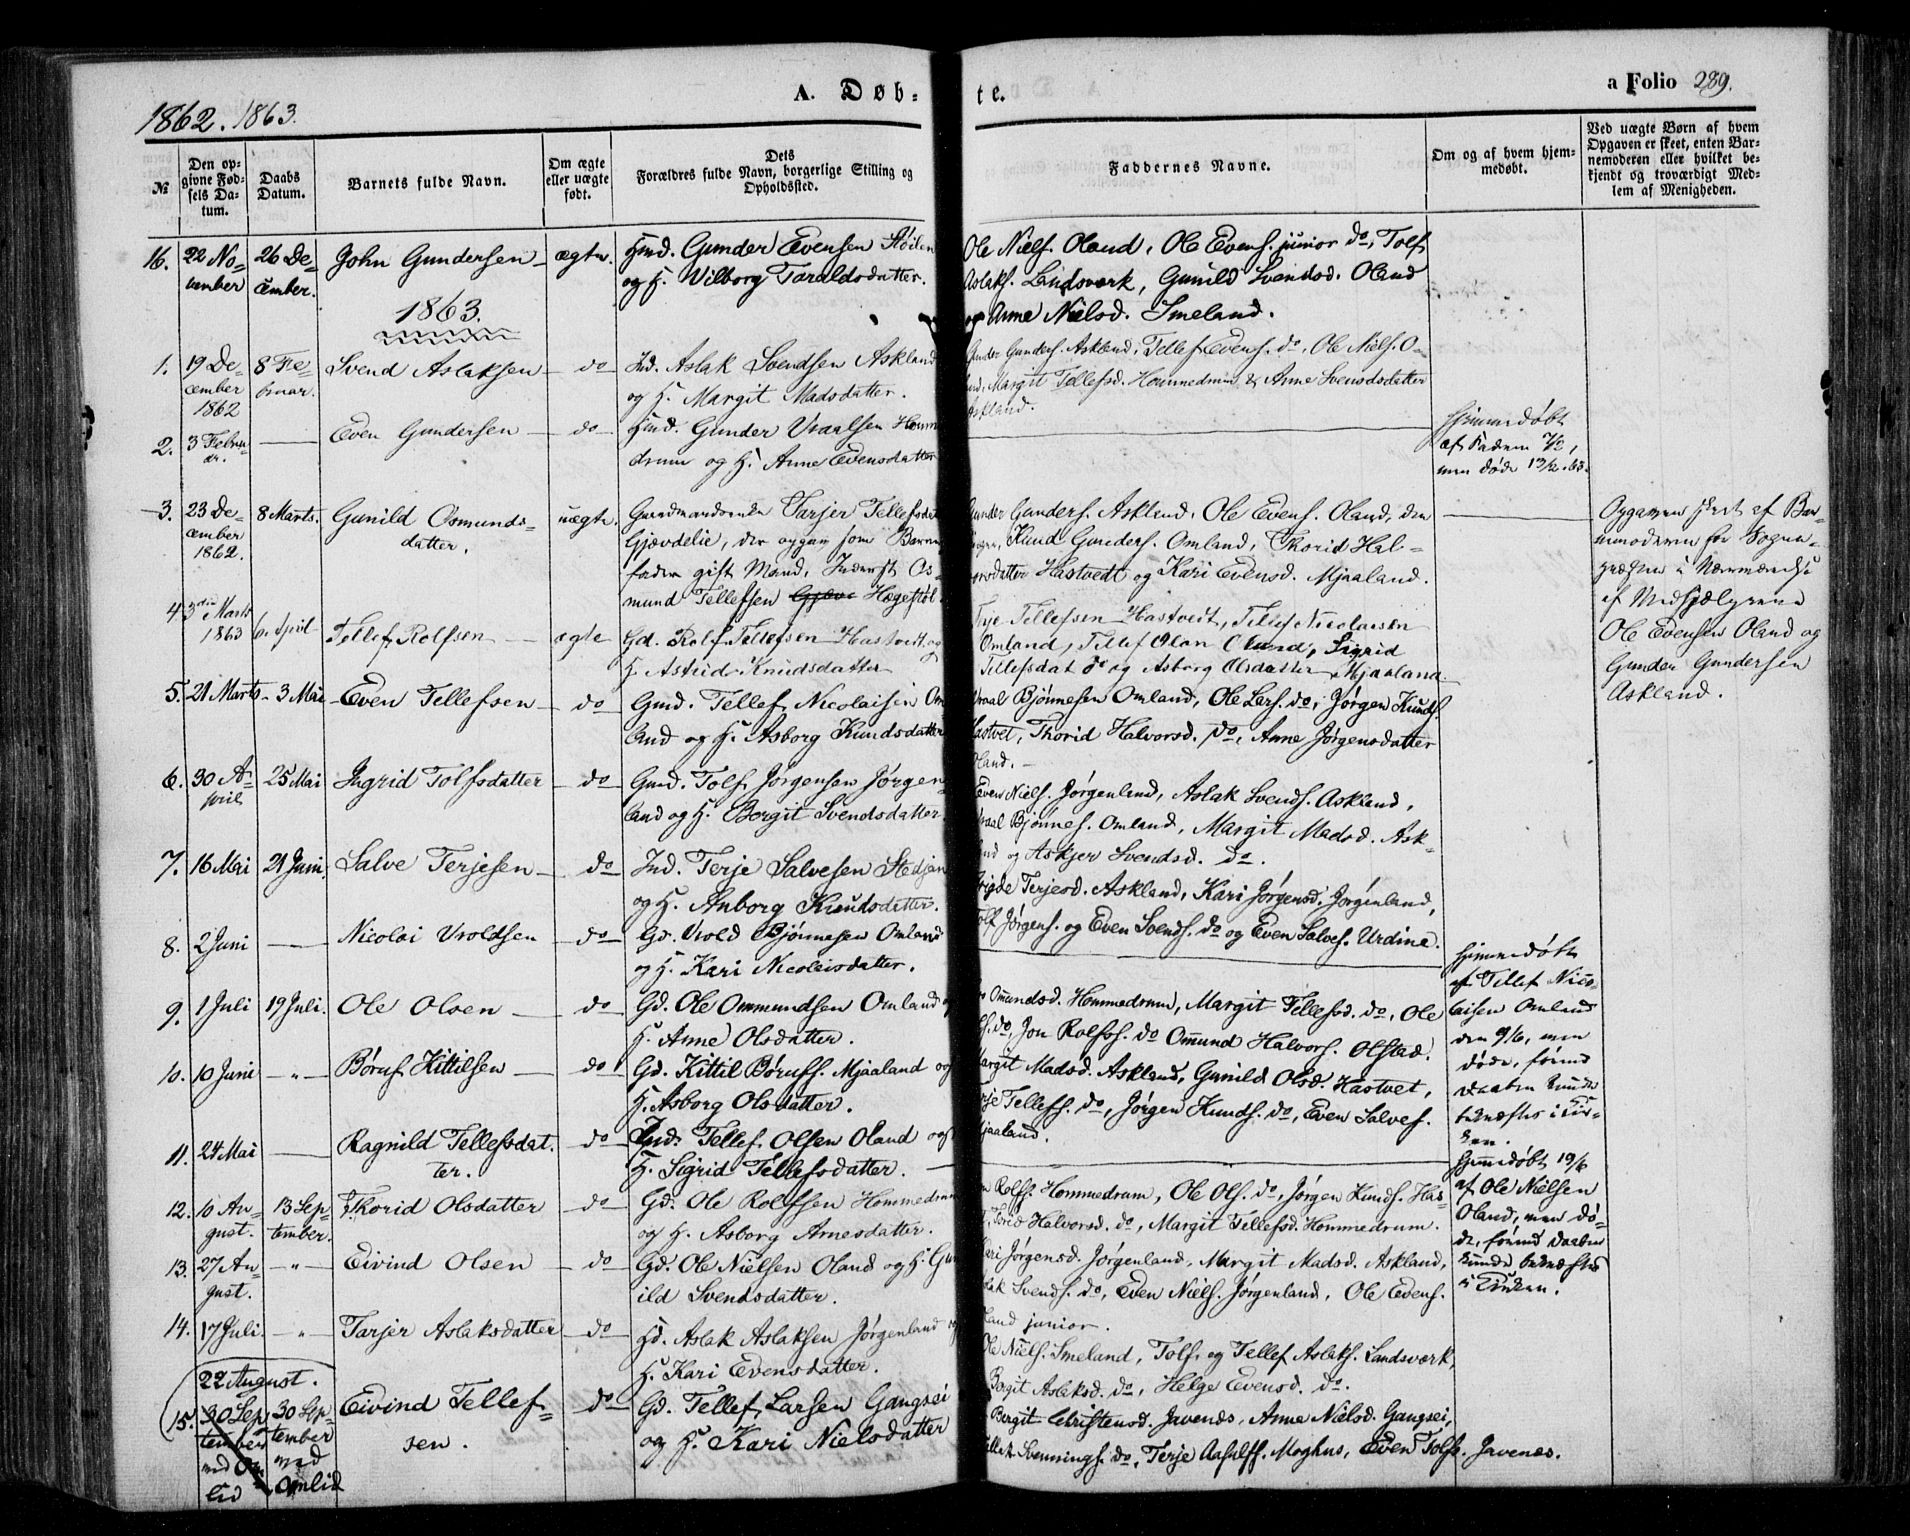 1862. 1863.
A. Døb-
te.
a Folio 289.
№
Den op-
givne Fød-
sels Da-
tum.
Daabs
Datum.
Barnets fulde Navn.
Om ægte
eller uægte
født.
Dets
Forældres fulde Navn, borgerlige Stilling og
Opholdssted.
Faddernes Navne.
Om og af hvem hjem-
medøbt.
Ved uægte Børn af hvem
Opgaven er skeet, enten Bar-
nemoderen eller hvilket be-
kjendt og troværdigt Med-
lem af Menigheden.
16. 22 No-
vember
26 De-
cember.
John Gundersen
ægte.
Gunder Evensen
og H. Vilborg Taraldsdatter.
Ole Niels. Oland, Ole Evens. junior do, Tolf
Aslaks. Landsværk, Gunild Svendsd. Oland
og Anne Nielsd. Smeland.
1863.
1. 19 De-
cember
1862
8 Fe-
bruar.
Svend Aslaksen
do
Ind. Aslak Svendsen Askland
og H. Margit Madsdatter.
Gunder Gunders. Askland, Tellef Evens. do, Ole Niels. O-
Margit Tellefsd. Hommedrum & Anne Svendsdatter
Askland.
2. 3 Febru-
ar.
Even Gundersen
do
Gunder Vraalsen Homme
drum og H. Anne Evensdatter
Hjemmedøbt
af Faderen 7/2,
men døde 13/2 63.
3. 23 De-
cember
1862.
8 Marts.
Gunild Osmunds-
datter.
uægte.
Gaardmandsenke Tarjer Tellefsdat
Gjævdelie, der opgav som Barne
fader gift Mand, Inderst Os-
mund Tellefsen Hægestøl.
Gunder Gunders. Askland, Ole Evens. Oland, den
Knud Gunders. Omland, Thorid Hal-
vorsdatter Hastvedt og Kari Evensd. Mjaaland.
Opgaven skeet af Bar-
nemoderen for Sogne-
præsten i Nærværelse
af Medhjælperne
Ole Evensen Oland og
Gunder Gundersen
Askland.
4. 3die Marts
1863
6. April
Tellef Rolfsen
ægte
Gd. Rolf Tellefsen Hastvedt og
H. Astrid Knudsdatter
Tellefsen Hastvedt, Tellef Nicolaisen
Omland, Tellef Olsen Oland, Sigrid
Tellefsdat do og Asborg Olsdatter Mjaaland.
5. 21 Marts
3 Mai
Even Tellefsen
do
Gmd. Tellef Nicolaisen Om
land og H. Asborg Knudsdatter
Vraal Bjønnesen Omland, Ole Lars. do, Jørgen Knuds.
Hastvet, Thorid Halvorsd. do, Anne Jørgensdatter
Oland.
6. 30 A-
pril
25 Mai
Ingrid Tolfsdatter
do
Gmd. Tolf Jørgensen Jørgen
land og H. Borgit Svendsdatter
Even Niels. Jørgenland, Aslak Svends. Askland,
Vraal Bjønnes. Omland, Margit Madsd. Ask-
land og Askjer Svendsd. do.
7. 16 Mai
21 Juni.
Salve Terjesen
do
Ind. Terje Salvesen
og H. Anborg Knudsdatter.
Terjesd. Askland, Kari Jørgensd. Jørgenland,
Tolf Jørgens. og Even Svends. do og Even Salves. Urdine.
8. 2 Juni
Nicolai Vroldsen
do
Gd. Vrold Bjønnesen Omland
og H. Kari Nicolaisdatter.
Hjemmedøbt
af Tellef Nico-
laisen Omland
den 9/6, men
døde, forind
Daaben kunde
bekræftes i Kir-
ken.
9. 1 Juli
19 Juli.
Ole Olsen
do
Gd. Ole Ommundsen Omland og
H. Anne Olsdatter.
Omundsd. Hommedrum, Margit Tellefsd. do, Ole
do, Jon Rolfss. do Omund Halvors. Olstad.
10. 10 Juni
"
Børuf Kittilsen
do
Gd. Kittil Børufs. Mjaaland og
H. Asborg Olsdatter.
Margit Madsd. Askland, Gunild Olsd. Hastvet,
Terje Tellefs. do, Jørgen Knuds. do, Even Salves.
Mjaaland.
11. 24 Mai
Ragnild Tellefsdat-
ter.
do
Ind. Tellef Olsen Oland og
H. Sigrid Tellefsdatter.
Hjemmedøbt 19/6
af Ole Nielsen
Oland, men dø-
de, forind Daaben
kunde bekræftes
i Kirken.
12. 10 Au-
gust.
13 Sep-
tember.
Thorid Olsdatter
do
Gd. Ole Rolfsen Hommedrum
og H. Asborg Arnesdatter.
Rolfss. Hommedrum, Ole Ols. do, Jørgen Knuds. Has-
Halvorsd. do, Margit Tellefsd. Hommedrum.
13. 27 Au-
gust.
"
Eivind Olsen
do
Gd. Ole Nielsen Oland og H. Gun
ild Svendsdatter.
Kari Jørgensd. Jørgenland, Margit Madsd. Askland,
Aslak Svends. do, Even Niels. Jørgenland, Ole Evens.
Oland junior.
14. 17 Juli.
"
Tarjer Aslaksdatter
do
Gd. Aslak Aslaksen Jørgenland og
H. Kari Evensdatter.
Ole Niels. Smeland, Tolf og Tellef Aslaks. Landsværk,
Borgit Aslaksd. do, Helge Evensd. do.
22 August.
15. 30 Sep-
tember
ved Om-
lid
30 Sep-
tember
ved
Omlid
Eivind Tellef-
sen.
do
Gd. Tellef Larsen Gangsei
og H. Kari Nielsdatter
Bergit Christensd. Javenes, Anne Nielsd. Gangsei,
Svennings. do, Terje Aasulfs. Moghus, Even Tolfs. Javenes.